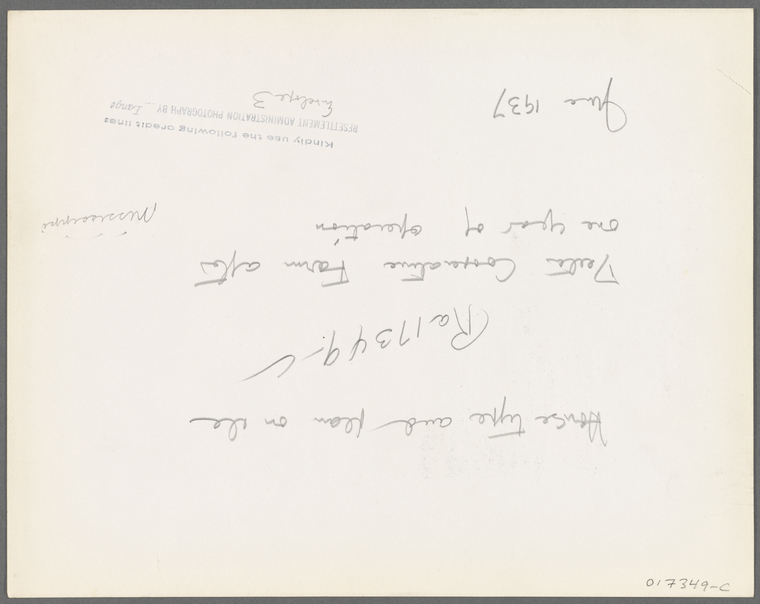 House type and plan on the
Ra 17349-C
Delta Cooperative Farm after
one year of operation
Mississippi
June 1937
Kindly use the following credit line:
RESETTLEMENT ADMINISTRATION PHOTOGRAPH BY Lange
Envelope 3
017349-C